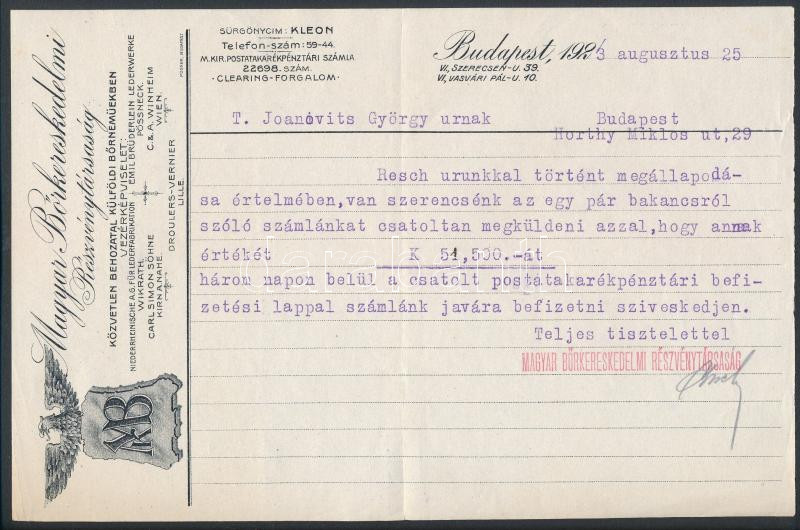 Magyar Bőrkereskedelmi
Részvénytársaság
KÖZVETLEN BEHOZATAL KÜLFÖLDI BŐRNEMŰEKBEN
VEZÉRKÉPVISELET:
NIEDERRHEINISCHE A.G. FÜR LEDERFABRIKATION
WIKRATH.
EMIL BRÜDERLEIN LEDERWERKE
PÖSSNECK.
CARL SIMON SÖHNE
KIRN A. NAHE.
C. & A. WINHEIM
WIEN.
DROULERS-VERNIER
LILLE.
MBR
SÜRGÖNYCIM: KLEON
Telefon-szám: 59-44.
M. KIR. POSTATAKARÉKPÉNZTÁRI SZÁMLA
22698. SZÁM.
· CLEARING-FORGALOM ·
Budapest, 1923 augusztus 25
VI, SZERECSEN-U. 39.
VI, VASVÁRI PÁL-U. 10.
T. Joanovits György urnak Budapest
Horthy Miklos ut,29
Resch urunkkal történt megállapodá-
sa értelmében,van szerencsénk az egy pár bakancsról
szóló számlánkat csatoltan megküldeni azzal,hogy annak
értékét K 51,500.-át
három napon belül a csatolt postatakarékpénztári befi-
zetési lappal számlánk javára befizetni sziveskedjen.
Teljes tisztelettel
MAGYAR BŐRKERESKEDELMI RÉSZVÉNYTÁRSASÁG